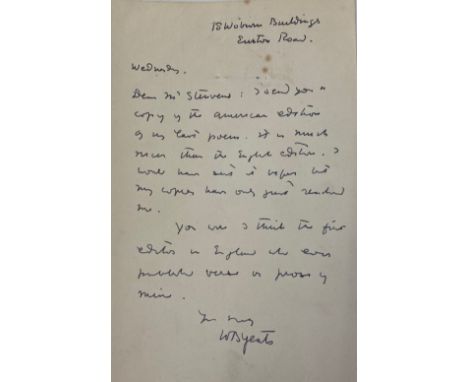 18 Woburn Buildings
Euston Road.
Wednesday.
Dear Mr Stevens : I send you a
copy of the American edition
of my last poem. It is much
nicer than the English edition. I
would have sent it before but
my copies have only just reached
me.
You were I think the first
editor in England who ever
published verse or prose of
mine.
Yrs sincly
WB Yeats